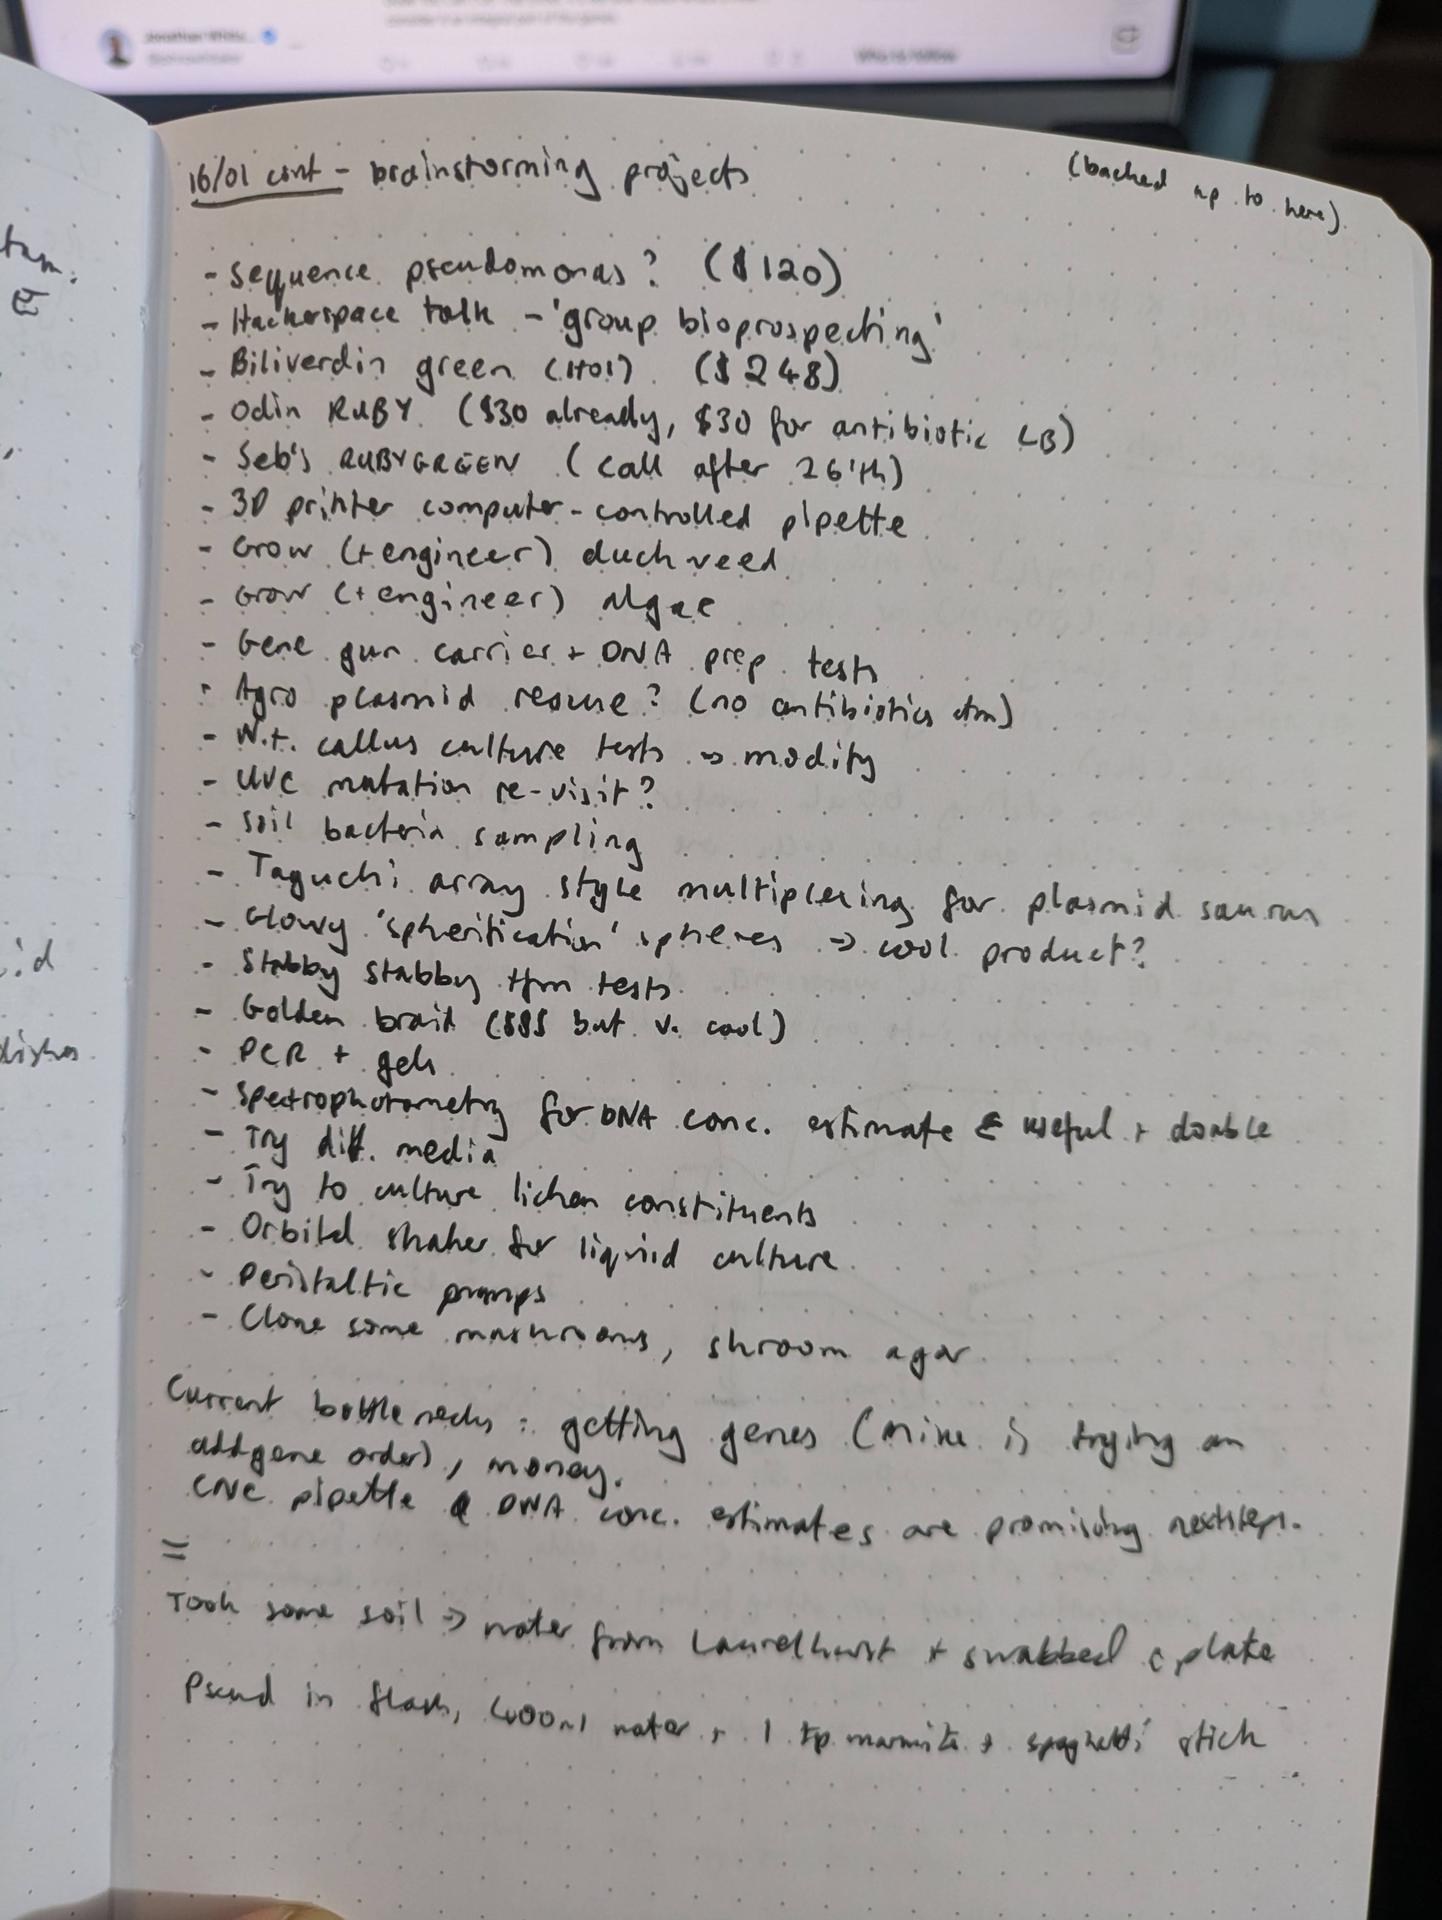 16/01 cont - brainstorming projects
(backed up to here)
- Sequence pseudomonas? ($120)
- Hackerspace talk - 'group bioprospecting'
- Biliverdin green (HO1) ($248)
- Odin RUBY ($30 already, $30 for antibiotic LB)
- Seb's RUBYGREEN (call after 26'th)
- 3D printer computer-controlled pipette
- Grow (+ engineer) duckweed
- Grow (+ engineer) algae
- Gene gun carrier + DNA prep tests
- Agro plasmid rescue? (no antibiotics atm)
- W.t. callus culture tests → modify
- UVC mutation re-visit?
- Soil bacteria sampling
- Taguchi array style multiplexing for plasmid saurus
- Glowy 'spherification' spheres → cool product?
- Stabby stabby tfm tests
- Golden braid ($$$ but v. cool)
- PCR + gels
- Spectrophotometry for DNA conc. estimate ← useful + doable
- Try diff. media
- Try to culture lichen constituents
- Orbital shaker for liquid culture
- Peristaltic pumps
- Clone some mushrooms, shroom agar
Current bottlenecks: getting genes (mine is trying an
addgene order), money.
CNC pipette & DNA conc. estimates are promising next steps.
=
Took some soil → water from Laurelhurst + swabbed plate
Pseud in flask, water + 1 tsp marmite + spaghetti stick
tum.
E
id
dishes
Who to follow